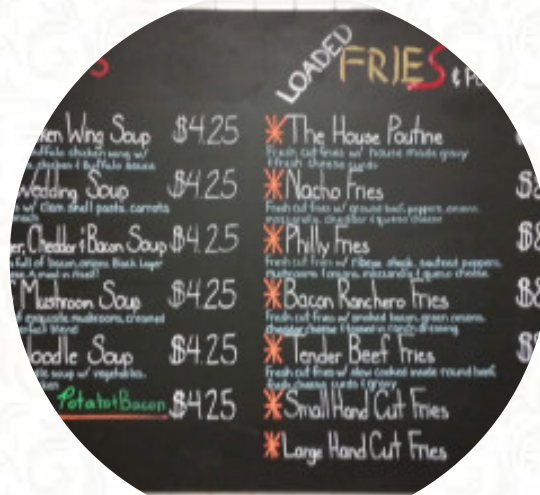 LOADED
FRIES
Wing Soup $4.25
chicken wing w/
chicken & Buffalo sauce
Wedding Soup $4.25
w/ clam shell pasta, carrots
Cheddar & Bacon Soup $4.25
full of bacon, onions, Black Lager
Mushroom Soup $4.25
exquisite mushrooms, creamed
blend
Soup $4.25
soup w/ vegetables,
Potato & Bacon $4.25
The House Poutine
Fresh cut fries w/ house made gravy
& fresh cheese curds
Nacho Fries
Fresh cut fries w/ ground beef, peppers, onions,
mozzarella, cheddar & queso cheese
Philly Fries
Fresh cut fries w/ Ribeye steak, sauteed peppers,
mushrooms & onions, mozzarella & queso cheese
Bacon Ranchero Fries
Fresh cut fries w/ smoked bacon, green onions,
cheddar cheese & ranch dressing
Tender Beef Fries
Fresh cut fries w/ slow cooked inside round beef,
fresh cheese curds & gravy
Small Hand Cut Fries
Large Hand Cut Fries